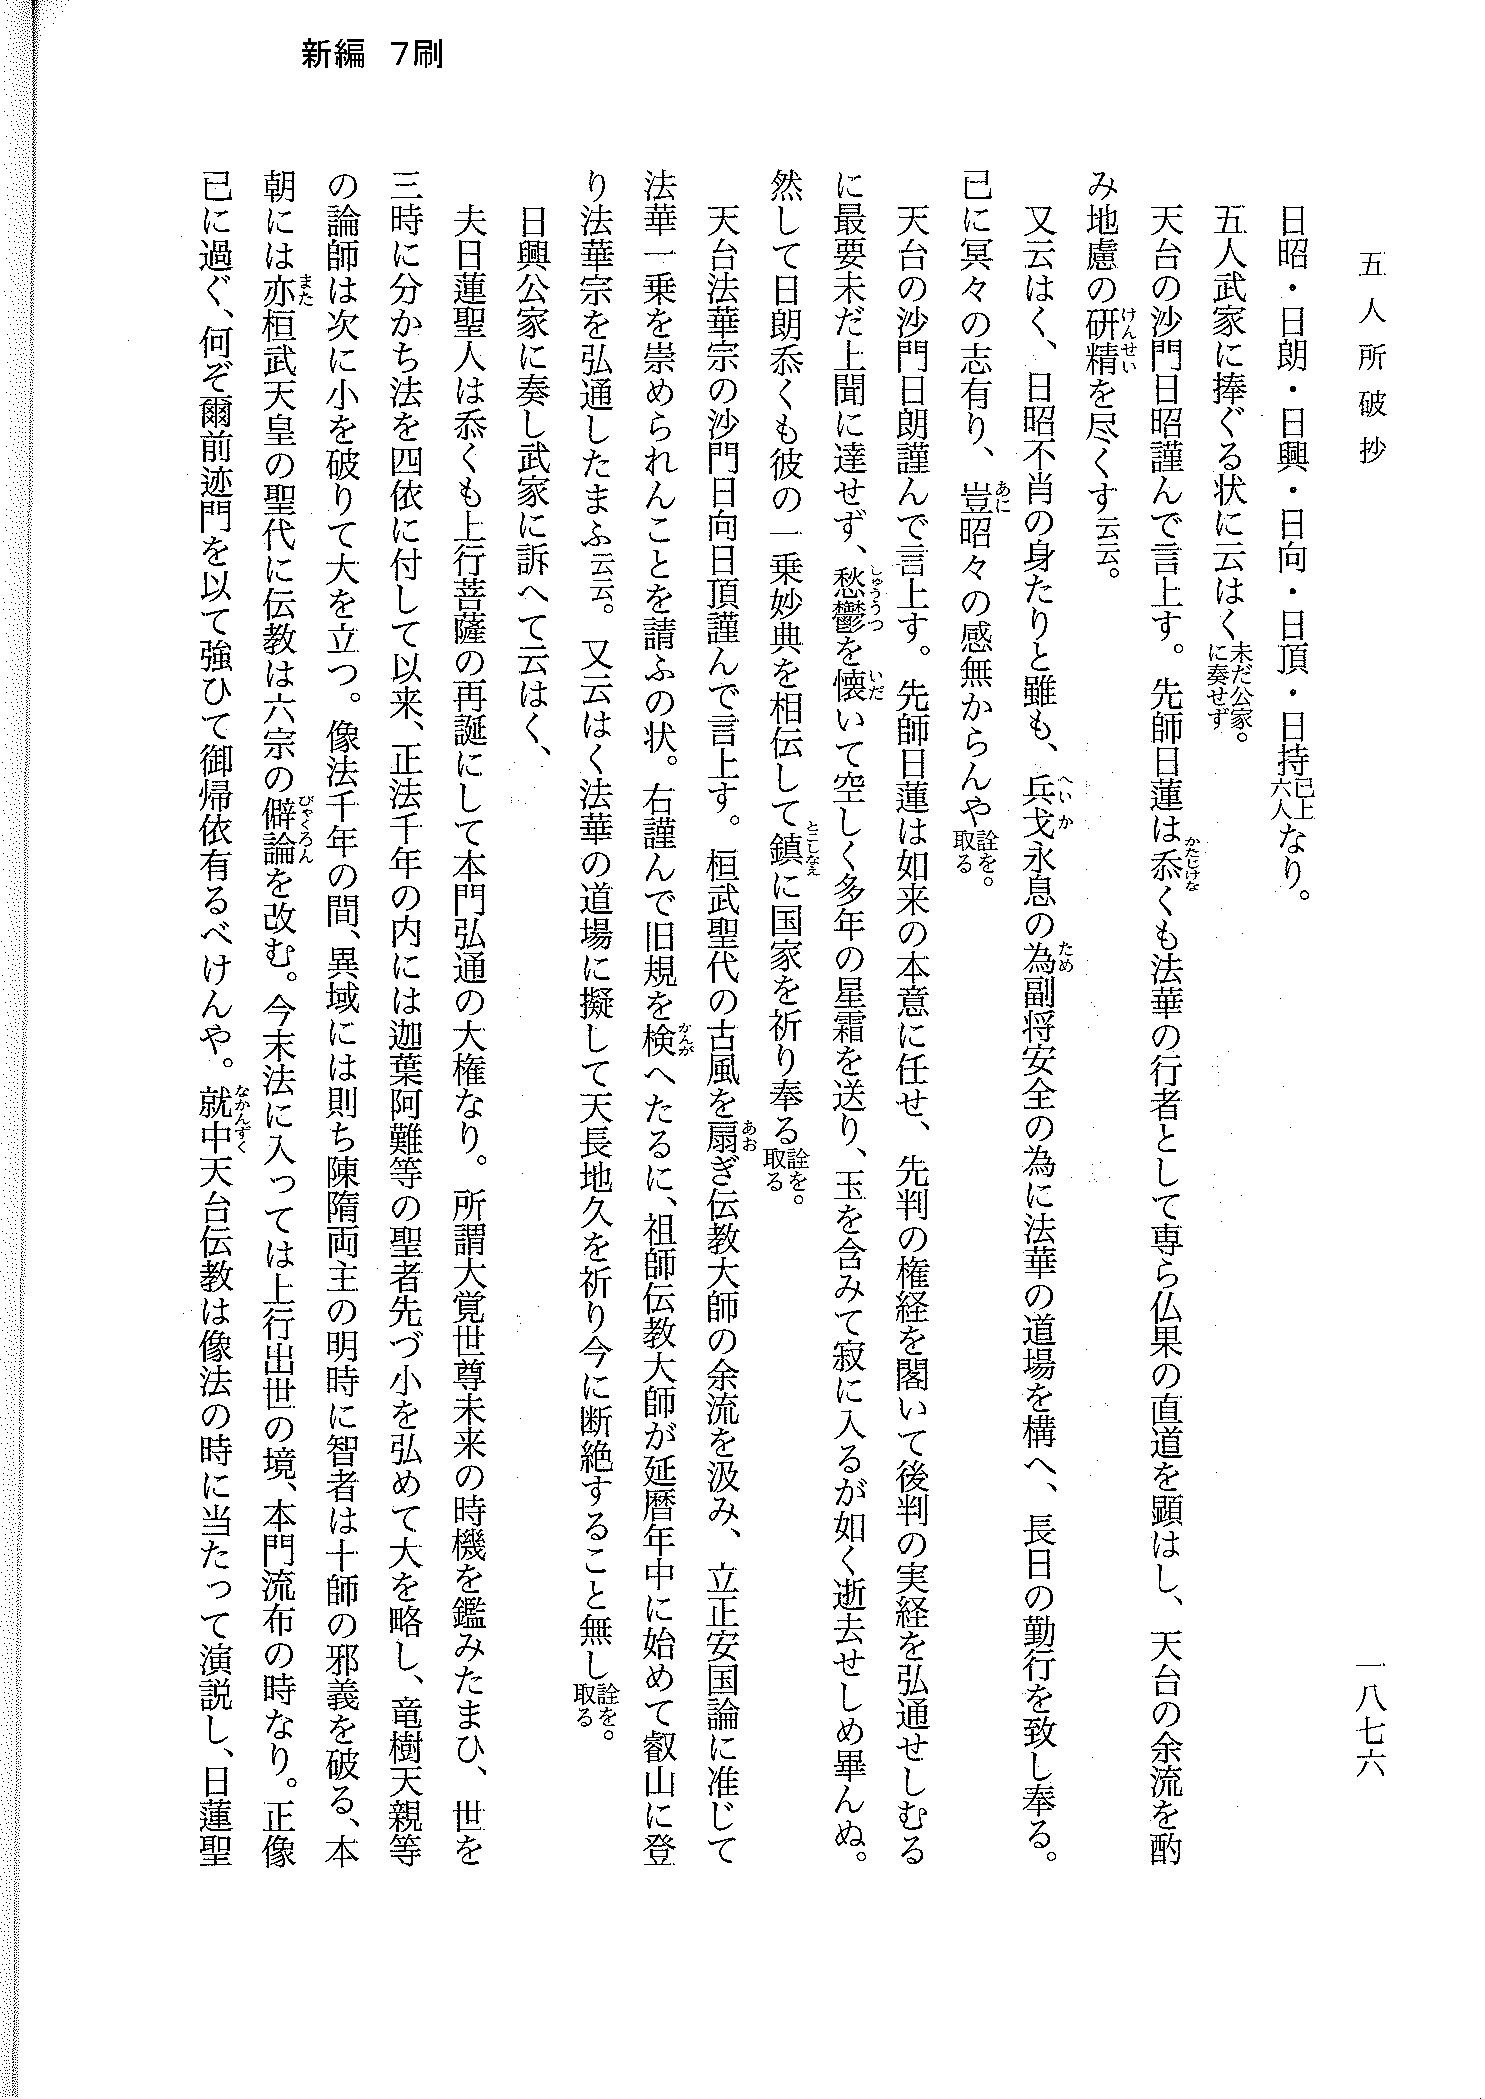 新編　7刷
五人所破抄
一八七六
日昭・日朗・日興・日向・日頂・日持已上六人なり。
五人武家に捧ぐる状に云はく未だ公家に奏せず。
天台の沙門日昭謹んで言上す。先師日蓮は忝くも法華の行者として専ら仏果の直道を顕はし、天台の余流を酌
み地慮の研精を尽くす云云。
又云はく、日昭不肖の身たりと雖も、兵戈永息の為副将安全の為に法華の道場を構へ、長日の勤行を致し奉る。
已に冥々の志有り、豈昭々の感無からんや詮を取る。
天台の沙門日朗謹んで言上す。先師日蓮は如来の本意に任せ、先判の権経を閣いて後判の実経を弘通せしむる
に最要未だ上聞に達せず、愁鬱を懐いて空しく多年の星霜を送り、玉を含みて寂に入るが如く逝去せしめ畢んぬ。
然して日朗忝くも彼の一乗妙典を相伝して鎮に国家を祈り奉る詮を取る。
天台法華宗の沙門日向日頂謹んで言上す。桓武聖代の古風を扇ぎ伝教大師の余流を汲み、立正安国論に准じて
法華一乗を崇められんことを請ふの状。右謹んで旧規を検へたるに、祖師伝教大師が延暦年中に始めて叡山に登
り法華宗を弘通したまふ云云。又云はく法華の道場に擬して天長地久を祈り今に断絶すること無し詮を取る。
日興公家に奏し武家に訴へて云はく、
夫日蓮聖人は忝くも上行菩薩の再誕にして本門弘通の大権なり。所謂大覚世尊未来の時機を鑑みたまひ、世を
三時に分かち法を四依に付して以来、正法千年の内には迦葉阿難等の聖者先づ小を弘めて大を略し、竜樹天親等
の論師は次に小を破りて大を立つ。像法千年の間、異域には則ち陳隋両主の明時に智者は十師の邪義を破る、本
朝には亦桓武天皇の聖代に伝教は六宗の僻論を改む。今末法に入っては上行出世の境、本門流布の時なり。正像
已に過ぐ、何ぞ爾前迹門を以て強ひて御帰依有るべけんや。就中天台伝教は像法の時に当たって演説し、日蓮聖